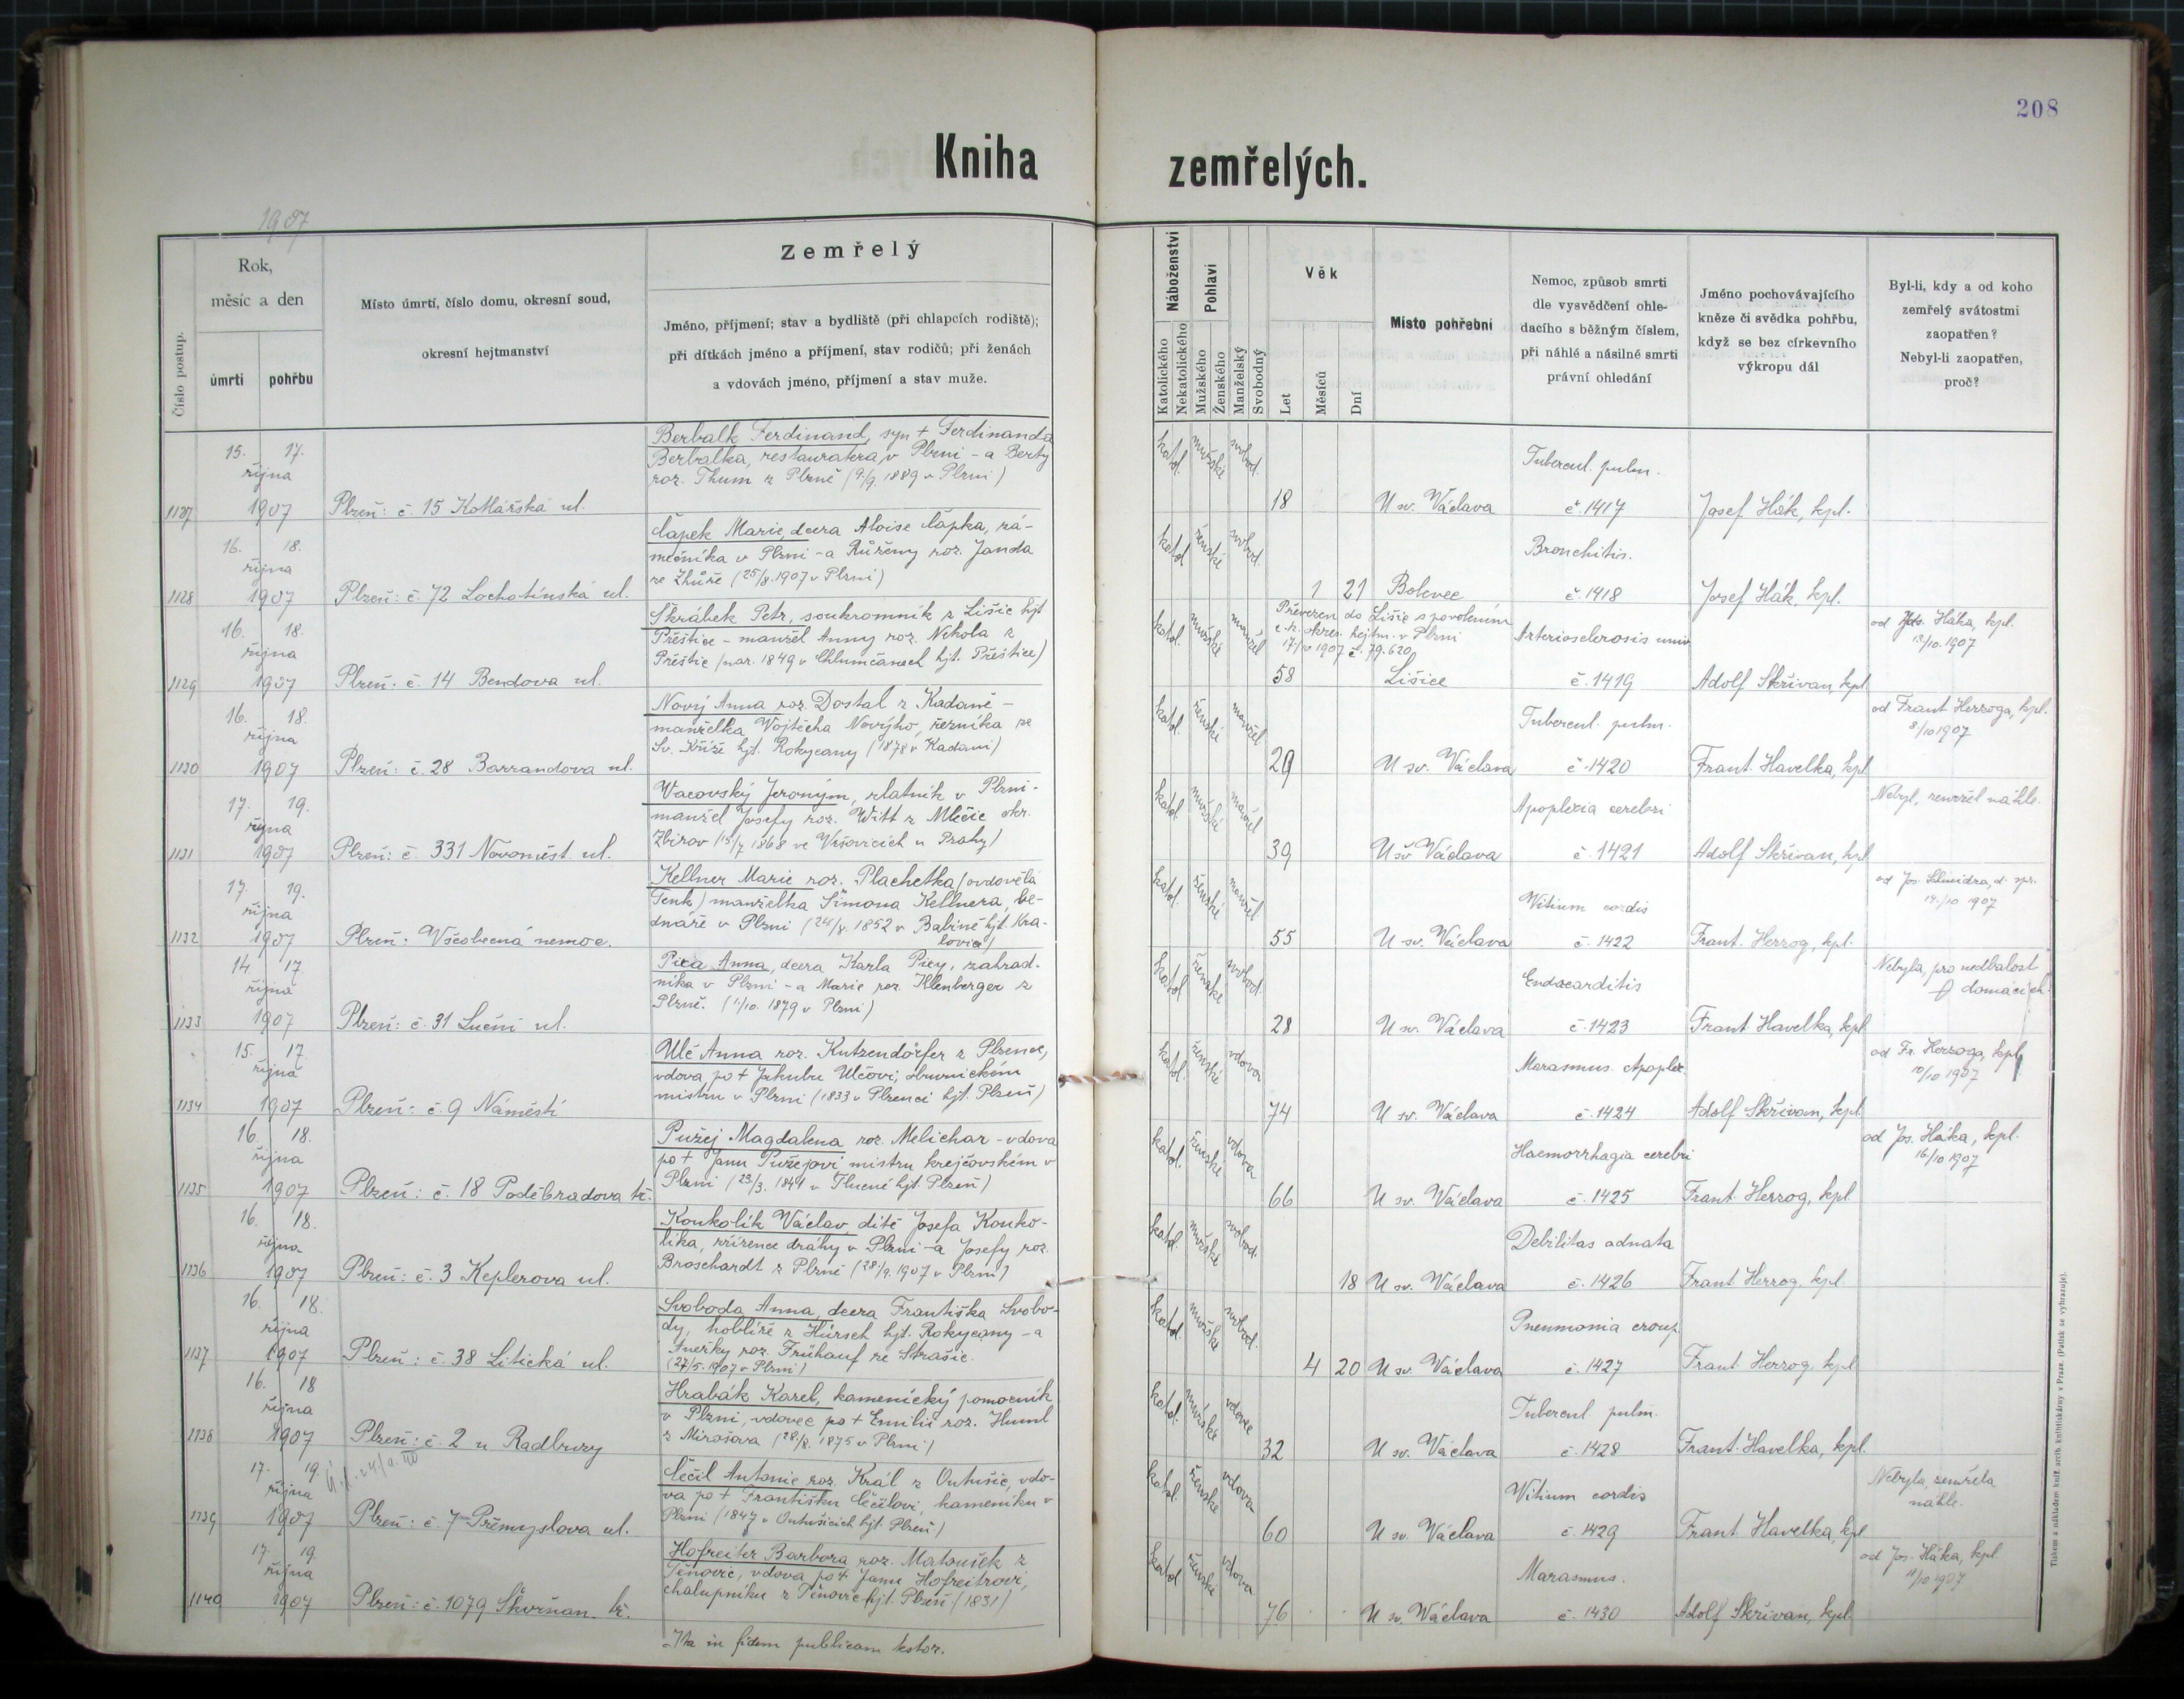 208
Kniha zemřelých.
1907
Číslo postup.
Rok,
měsíc a den
úmrtí
pohřbu
Místo úmrtí, číslo domu, okresní soud,
okresní hejtmanství
Zemřelý
Jméno, příjmení; stav a bydliště (při chlapcích rodiště);
při dítkách jméno a příjmení, stav rodičů; při ženách
a vdovách jméno, příjmení a stav muže.
Náboženství
Katolického
Nekatolického
Pohlaví
Mužského
Ženského
Manželský
Svobodný
Věk
Let
Měsíců
Dní
Místo pohřební
Nemoc, způsob smrti
dle vysvědčení ohle-
dacího s běžným číslem,
při náhlé a násilné smrti
právní ohledání
Jméno pochovávajícího
kněze či svědka pohřbu,
když se bez církevního
výkropu dál
Byl-li, kdy a od koho
zemřelý svátostmi
zaopatřen?
Nebyl-li zaopatřen,
proč?
15. 17.
října
1127 1907 Plzeň: č. 15 Kollárská ul.
Berbalk Ferdinand, syn + Ferdinanda
Berbalka, restauratéra, v Plzni - a Berty
roz. Thum z Plzně (9/9. 1889 v Plzni)
katol. mužské svobod. 18 U sv. Václava
Tubercul. pulm.
č. 1417 Josef Hák, kpl.
16. 18.
října
1128 1907 Plzeň: č. 72 Lochotínská ul.
Čapek Marie, dcera Aloise Čapka, zá-
mečníka v Plzni - a Růženy roz. Janda
ze Zhůře (25/8. 1907 v Plzni)
katol. ženské svobod. 1 21 Bolevec
Bronchitis.
č. 1418 Josef Hák, kpl.
16. 18.
října
1129 1907 Plzeň: č. 14 Bendova ul.
Skrábek Petr, soukromník z Lišic hjt
Přeštice - manžel Anny roz. Nekola z
Přeštic (nar. 1849 v Chlumčanech hjt. Přeštice)
katol. mužské manžel
Převezen do Lišic s povolením
c. k. okres. hejtm. v Plzni
1907 č. 79.620
58 Lišice
Arteriosclerosis univ.
č. 1419 Adolf Skřivan, kpl.
od Jos. Háka, kpl.
13/10. 1907
16. 18.
října
1130 1907 Plzeň: č. 28 Barrandova ul.
Nový Anna roz. Dostal z Kadaně -
manželka Vojtěcha Nového, řezníka ze
Sv. Kříže hjt. Rokycany (1878 v Kadani)
katol. ženské manžel 29 U sv. Václava
Tubercul. pulm.
č. 1420 Frant. Havelka, kpl.
od Frant Herzoga, kpl.
8/10 1907
17. 19.
října
1131 1907 Plzeň: č. 331 Novoměst. ul.
Wacovský Jeroným, zlatník v Plzni -
manžel Josefy roz. Witt z Mlečic okr.
Zbirov (15/7 1868 ve Vršovicích u Prahy)
katol. mužské manžel 39 U sv Václava
Apoplexia cerebri
č. 1421 Adolf Skřivan, kpl
Nebyl, zemřel náhle.
17. 19.
října
1132 1907 Plzeň: Všeobecná nemoc.
Kellner Marie roz. Plachetka (ovdovělá
Tenk) manželka Šimona Kellnera, be-
dnáře v Plzni (24/8. 1852 v Babině hjt. Kra-
lovice)
katol. ženské manžel 55 U sv. Václava
Vitium cordis
č. 1422 Frant. Herzog, kpl.
od Jos. Schneidra, d. spr.
14/10 1907
14 17
října
1133 1907 Plzeň: č. 31 Luční ul.
Pica Anna, dcera Karla Picy, zahrad-
níka v Plzni - a Marie roz. Klenberger z
Plzně. (1/10. 1879 v Plzni)
katol. ženské svobod. 28 U sv. Václava
Endocarditis
č. 1423 Frant Havelka, kpl
Nebyla, pro nedbalost
domácích.
15. 17.
října
1134 1907 Plzeň: č. 9 Náměstí
Ulč Anna roz. Kutzendörfer z Plzence,
vdova po + Jakubu Ulčovi, obuvnickém
mistru v Plzni (1833 v Plzenci hjt. Plzeň)
katol. ženské vdova 74 U sv. Václava
Marasmus. Apoplex
č. 1424 Adolf Skřivan, kpl.
od Fr. Herzoga, kpl
10/10 1907
16. 18.
října
1135 1907 Plzeň: č. 18 Poděbradova tř.
Pužej Magdalena roz. Melichar - vdova
po + Janu Pužejovi mistru krejčovském v
Plzni (23/3. 1841 v Tlucné hjt. Plzeň)
katol. ženské vdova 66 U sv. Václava
Haemorrhagia cerebri
č. 1425 Frant. Herzog, kpl.
od Jos. Háka, kpl.
16/10 1907
16. 18.
října
1136 1907 Plzeň: č. 3 Keplerova ul.
Koukolík Václav, dítě Josefa Kouko-
líka, zřízence dráhy v Plzni - a Josefy roz.
Broschardt z Plzně (28/9. 1907 v Plzni)
katol. mužské svobod. 18 U sv. Václava
Debilitas adnata
č. 1426 Frant Herzog, kpl
16. 18.
října
1137 1907 Plzeň: č. 38 Litická ul.
Svoboda Anna, dcera Františka Svobo-
dy, kobliře z Hůrech hjt. Rokycany - a
Anežky roz. Frühauf ze Strašic.
(27/5. 1907 v Plzni)
katol. mužské svobod. 4 20 U sv. Václava
Pneumonia croup.
č. 1427 Frant. Herzog, kpl
16. 18
října
1138 1907 Plzeň: č. 2 u Radbuzy
Hrabák Karel, kamenický pomocník
v Plzni, vdovec po + Emilii roz. Huml
z Mirošova (28/8. 1875 v Plzni)
katol. mužské vdovec 32 U sv. Václava
Tubercul pulm.
č. 1428 Frant. Havelka, kpl.
17. 19.
října
1139 1907 Plzeň: č. 7 Přemyslova ul.
Čečil Antonie roz. Král z Outušic, vdo-
va po + Františku Čečilovi, kameníku v
Plzni (1847 v Outušicích hjt. Plzeň)
katol. ženské vdova 60 U sv. Václava
Vitium cordis
č. 1429 Frant Havelka, kpl
Nebyla, zemřela
náhle.
17. 19.
října
1140 1907 Plzeň: č. 1079 Skvrňan. tř.
Hofreiter Barbora roz. Matoušek z
Těnovic, vdova po + Janu Hofreitrovi,
chalupníku z Těnovic hjt. Plzeň (1831)
katol ženské vdova 76 U sv. Václava
Marasmus.
č. 1430 Adolf Skřivan, kpl.
od Jos. Háka, kpl.
11/10 1907
Ita in fidem publicam
Tiskem a nákladem kníž. arcib. knihtiskárny v Praze. (Patisk se vyhrazuje).